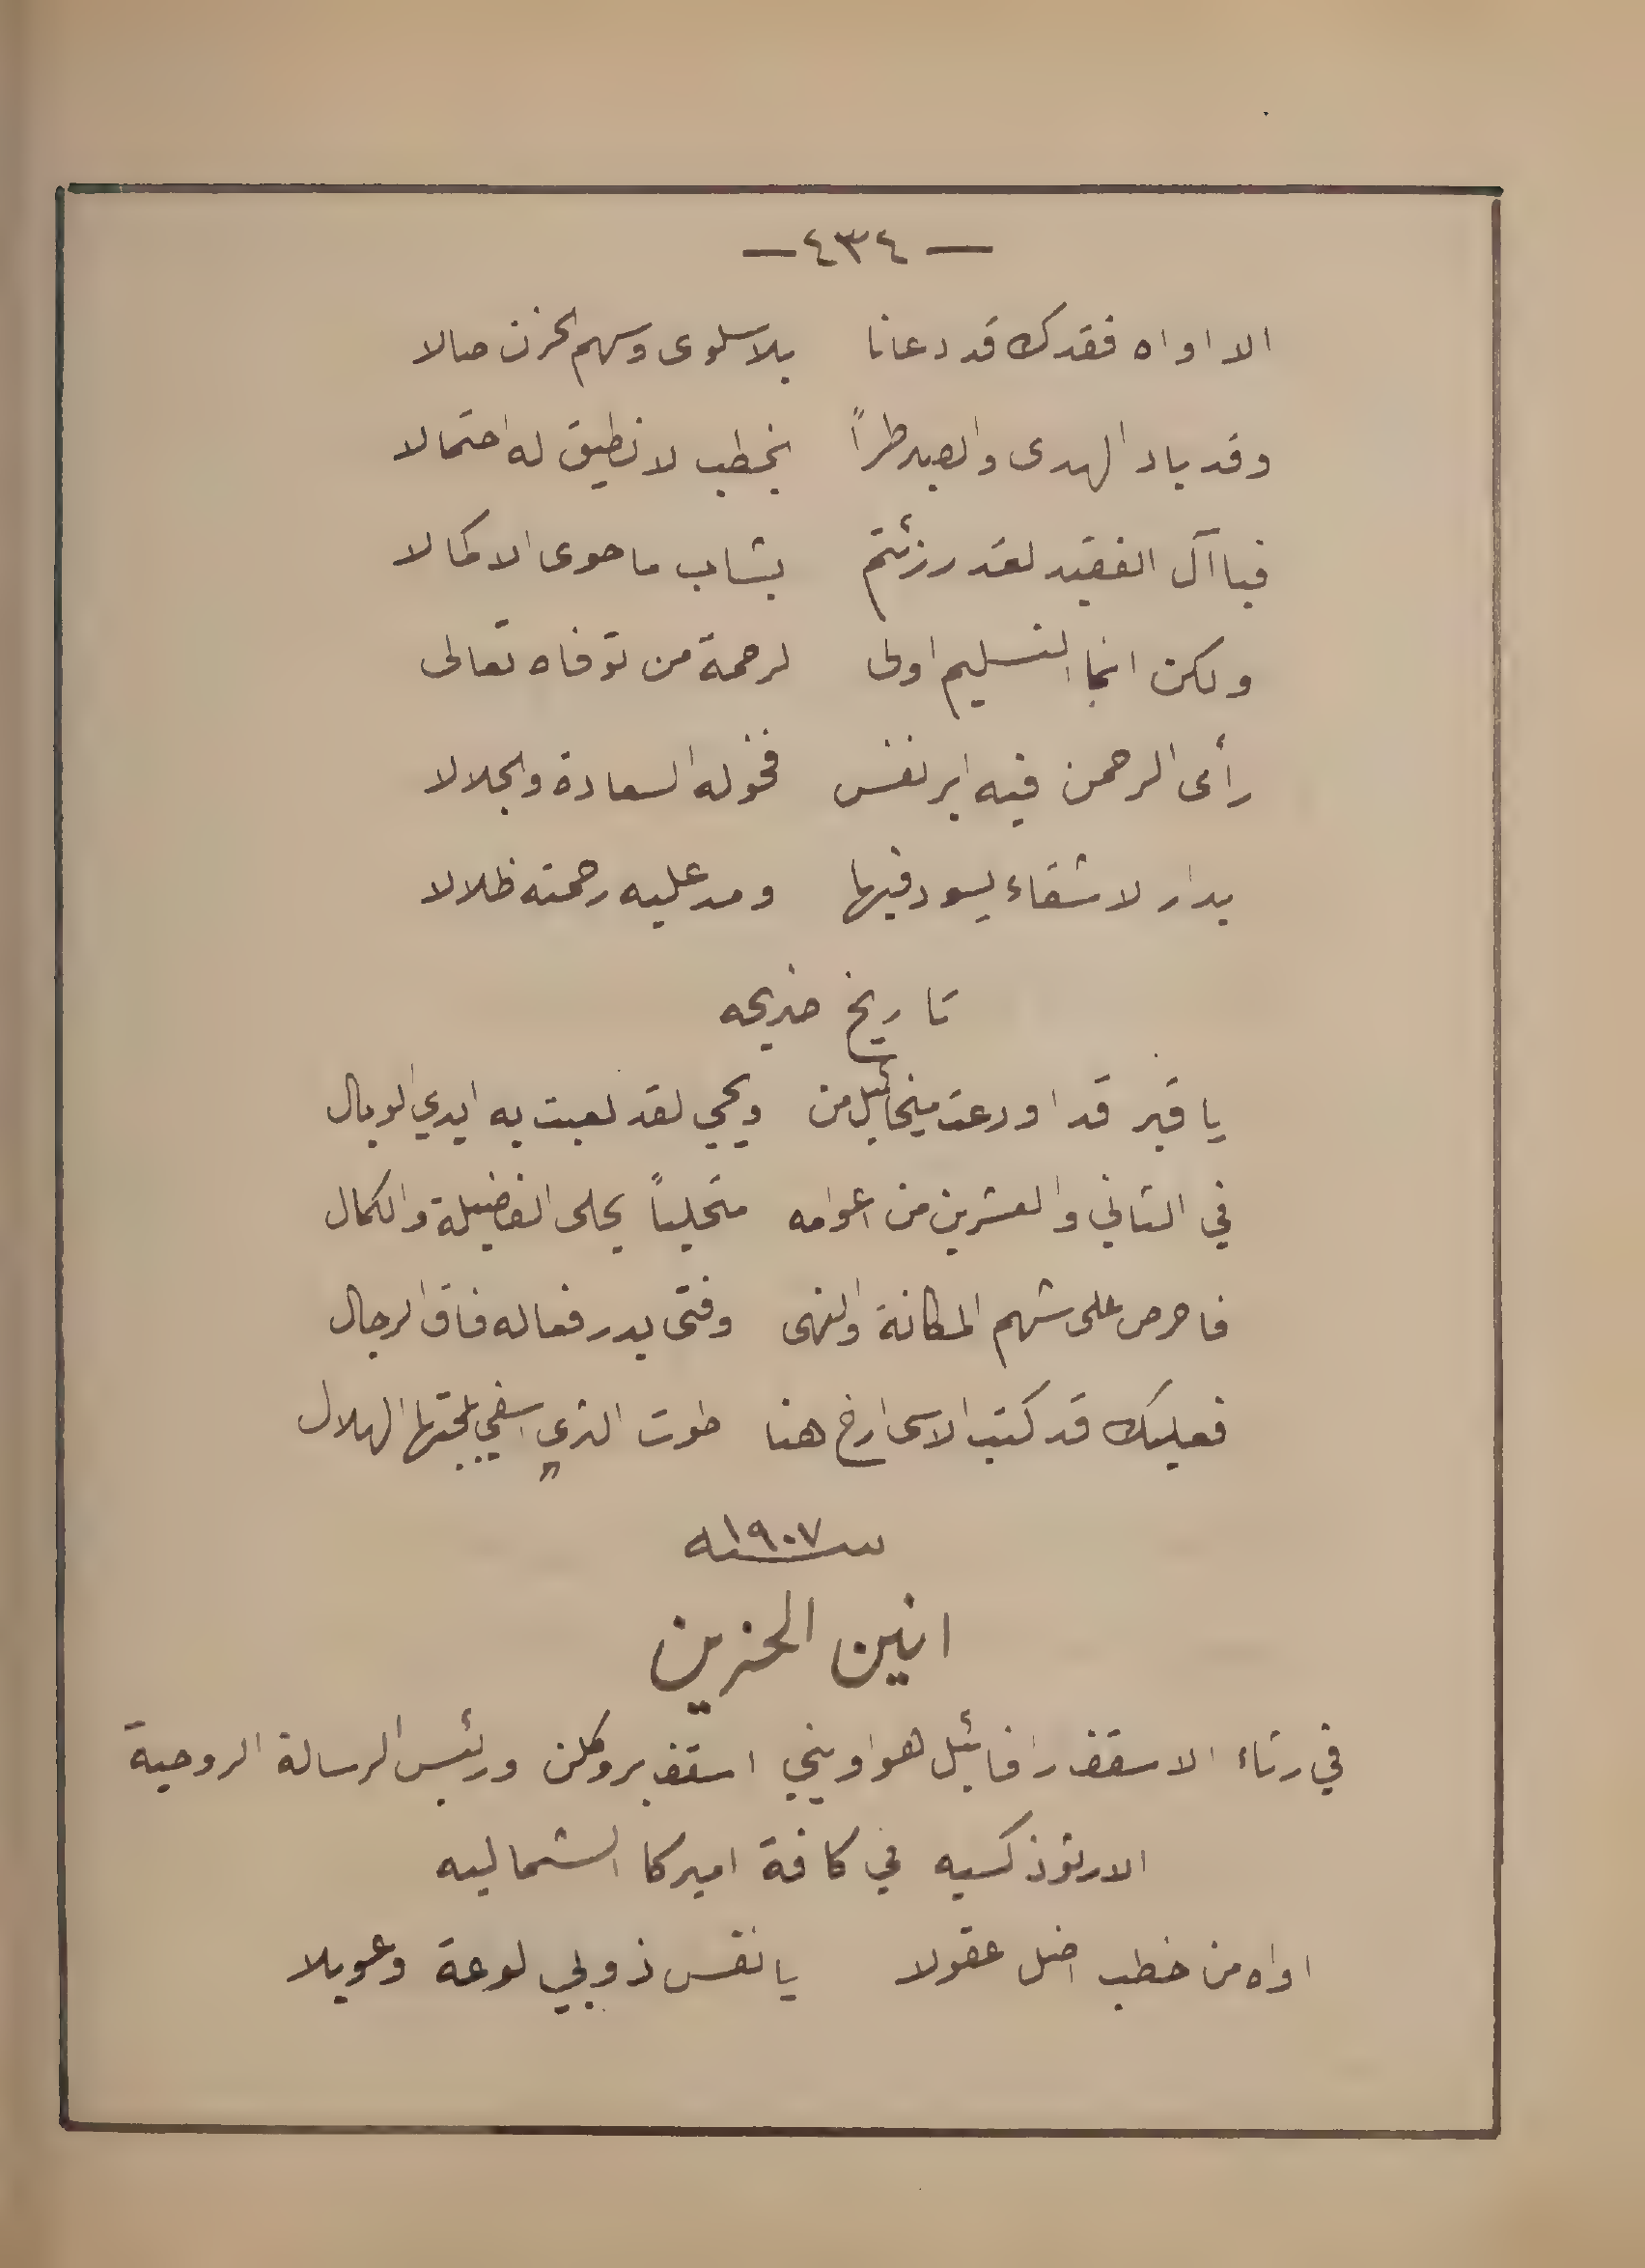 — ٤٣٤ —
الا اواه فقدك قد دعانا بلا سلوى وسهم الحزن صالا
وقد باد الهدى والصبر طراً بخطب لا نطيق له احتمالا
فيا آل الفقيد لقد رزئتم بشاب ما حوى الا كمالا
ولكن انما التسليم اولى لرحمة من توفاه تعالى
رأى الرحمن فيه ابر نفس فخوله السعادة والجلالا
بدار لا شقاء يسود فيها ومد عليه رحمته ظلالا
تاريخ ضريحه
يا قبر قد اودعت ميخائيل من ويحي لقد لعبت به ايدي الوبال
في الثاني والعشرين من اعوامه متحلياً بحلى الفضيلة والكمال
فاحرص على شهم المكانة والنهى وفتى بدر فعاله فاق الرجال
فعليك قد كتب الاسى ارخ هنا طوت الثرى اسفي بلجتها الهلال
سنة ١٩٠٧
انين الحزين
في رثاء الاسقف رافائيل هواويني اسقف بروكلن ورئيس الرسالة الروحية
الارثوذكسيه في كافة اميركا الشماليه
اواه من خطب اضل عقولا يا نفس ذوبي لوعة وعويلا